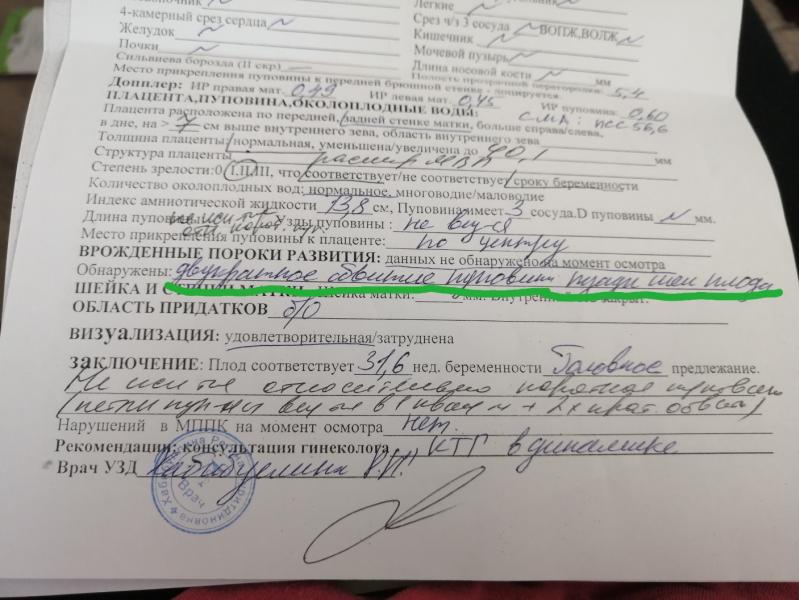 4-камерный срез сердца N
Срез ч/з 3 сосуда N ВОПЖ, ВОЛЖ N
Желудок N
Кишечник N
Почки N
Мочевой пузырь N
Сильвиева борозда (II скр) —
Длина носовой кости N мм
Место прикрепления пуповины к передней брюшной стенке - лоцируется.
Полость прозрачной перегородки 5,4
Допплер: ИР правая мат. 0,49 ИР левая мат. 0,45 ИР пуповины 0,60
ПЛАЦЕНТА,ПУПОВИНА,ОКОЛОПЛОДНЫЕ ВОДЫ: СМА: ПСС 56,6
Плацента расположена по передней, задней стенке матки, больше справа/слева,
в дне, на > 7 см выше внутреннего зева, область внутреннего зева
Толщина плаценты: нормальная, уменьшена/увеличена до 40,1 мм
Структура плаценты расшир МВП
Степень зрелости:0,I,II,III, что соответствует/не соответствует сроку беременности
Количество околоплодных вод: нормальное, многоводие/маловодие
Индекс амниотической жидкости 13,8 см, Пуповина имеет 3 сосуда.D пуповины N мм.
Длина пуповины не искл отн корот. Узлы пуповины : не виз-ся
Место прикрепления пуповины к плаценте: по центру
ВРОЖДЕННЫЕ ПОРОКИ РАЗВИТИЯ: данных не обнаружено на момент осмотра
Обнаружены: двукратное обвитие пуповины сзади шеи плода
ШЕЙКА И матки: мм.
ОБЛАСТЬ ПРИДАТКОВ б/о
ВИЗУАЛИЗАЦИЯ: удовлетворительная/затруднена
ЗАКЛЮЧЕНИЕ: Плод соответствует 31,6 нед. беременности Головное предлежание.
Не искл-ся относительно короткая пуповина
(петли пуп-ны в + 2х крат. обвит)
Нарушений в МППК на момент осмотра нет.
Рекомендации: консультация гинеколога КТГ в динамике
Врач УЗД Хабибуллина
Врач